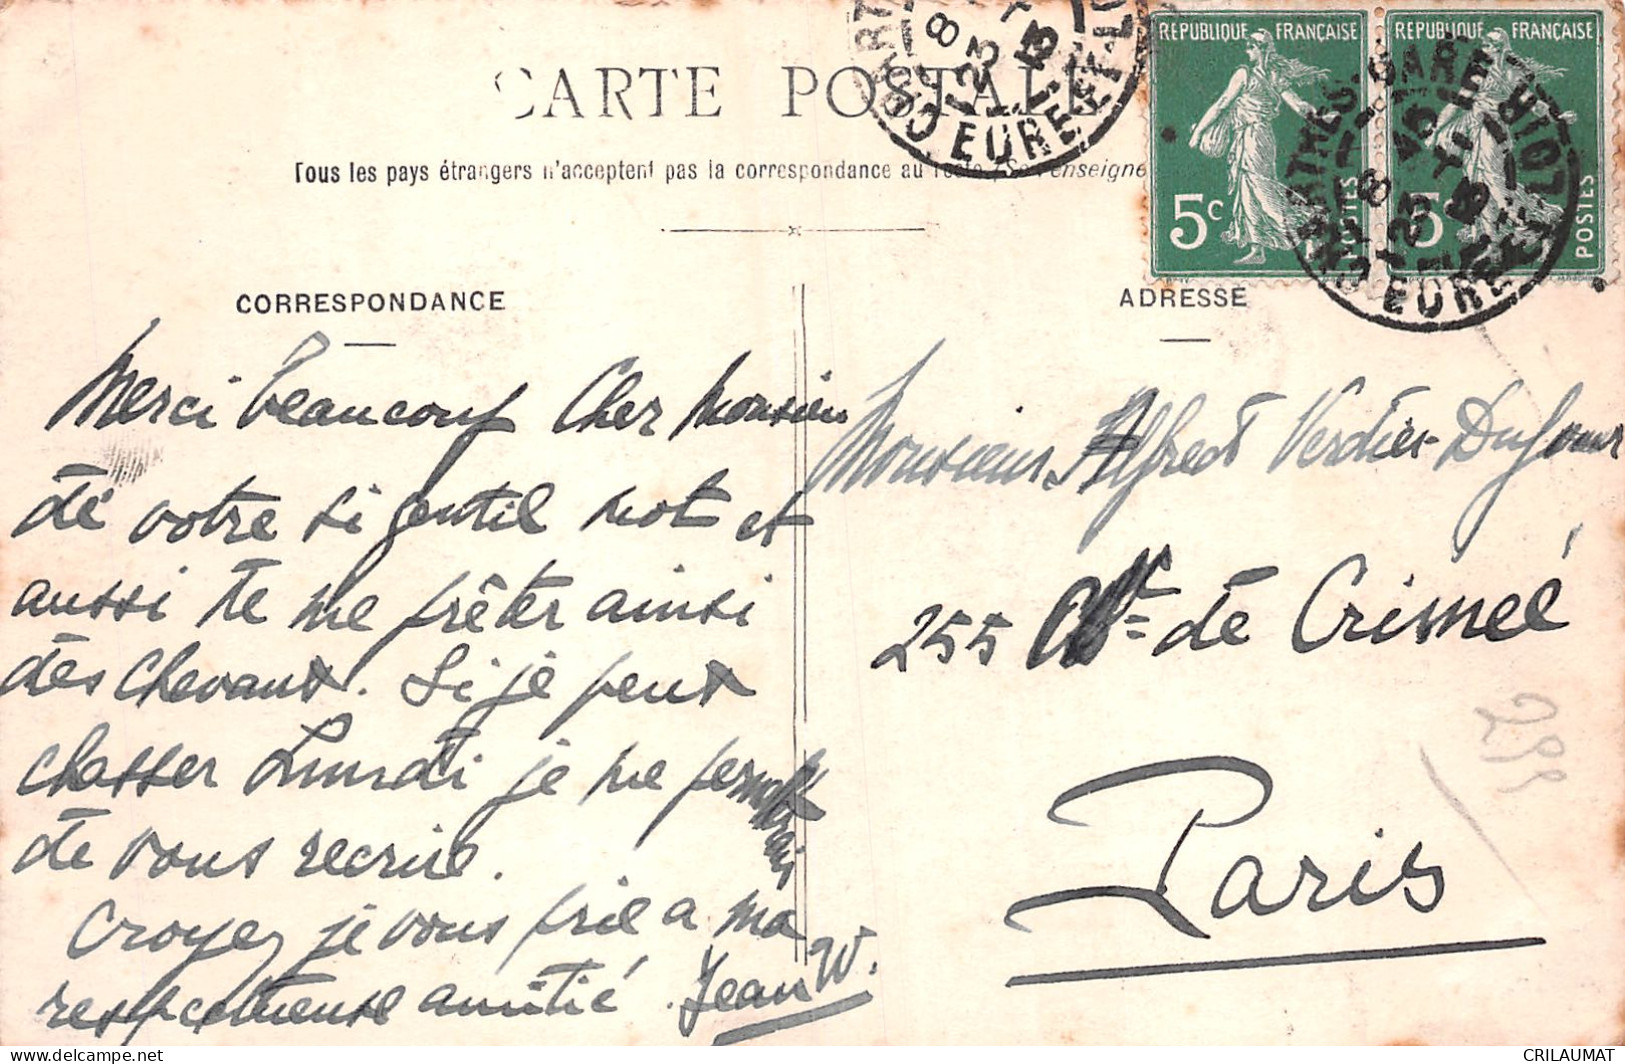 CARTE POSTALE
Tous les pays étrangers n'acceptent pas la correspondance au recto (Se renseigne
RÉPUBLIQUE FRANÇAISE
5c
POSTES
RÉPUBLIQUE FRANÇAISE
5
POSTES
CHARTRES GARE
8 45
23 - 11
13
EURE ET LOIR
CORRESPONDANCE
Merci beaucoup Cher Monsieur
de votre si gentil mot et
aussi de me prêter ainsi
des chevaux. Si je peux
chasser Lundi je me permettrai
de vous recrire.
Croyez je vous prie a ma
respectueuse amitié. Jean W.
ADRESSE
Monsieur Alfred Verdier-Dufour
255 de Crimeé
Paris
255
www.delcampe.net
CRILAUMAT